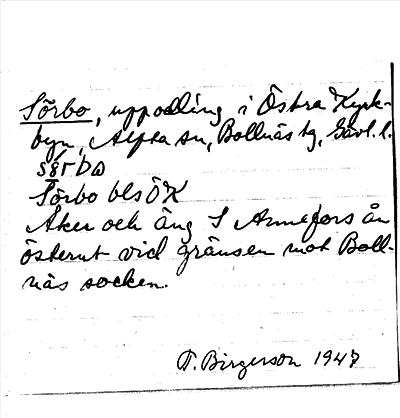 Sörbo, uppodling i Östra Kyrk-
byn, Alfta sn, Bollnäs tg, Gävl. l.
Sörbo bls ÖK
Åker och äng S Annefors ån
österut vid gränsen mot Boll-
näs socken.
T. Birgerson 1947